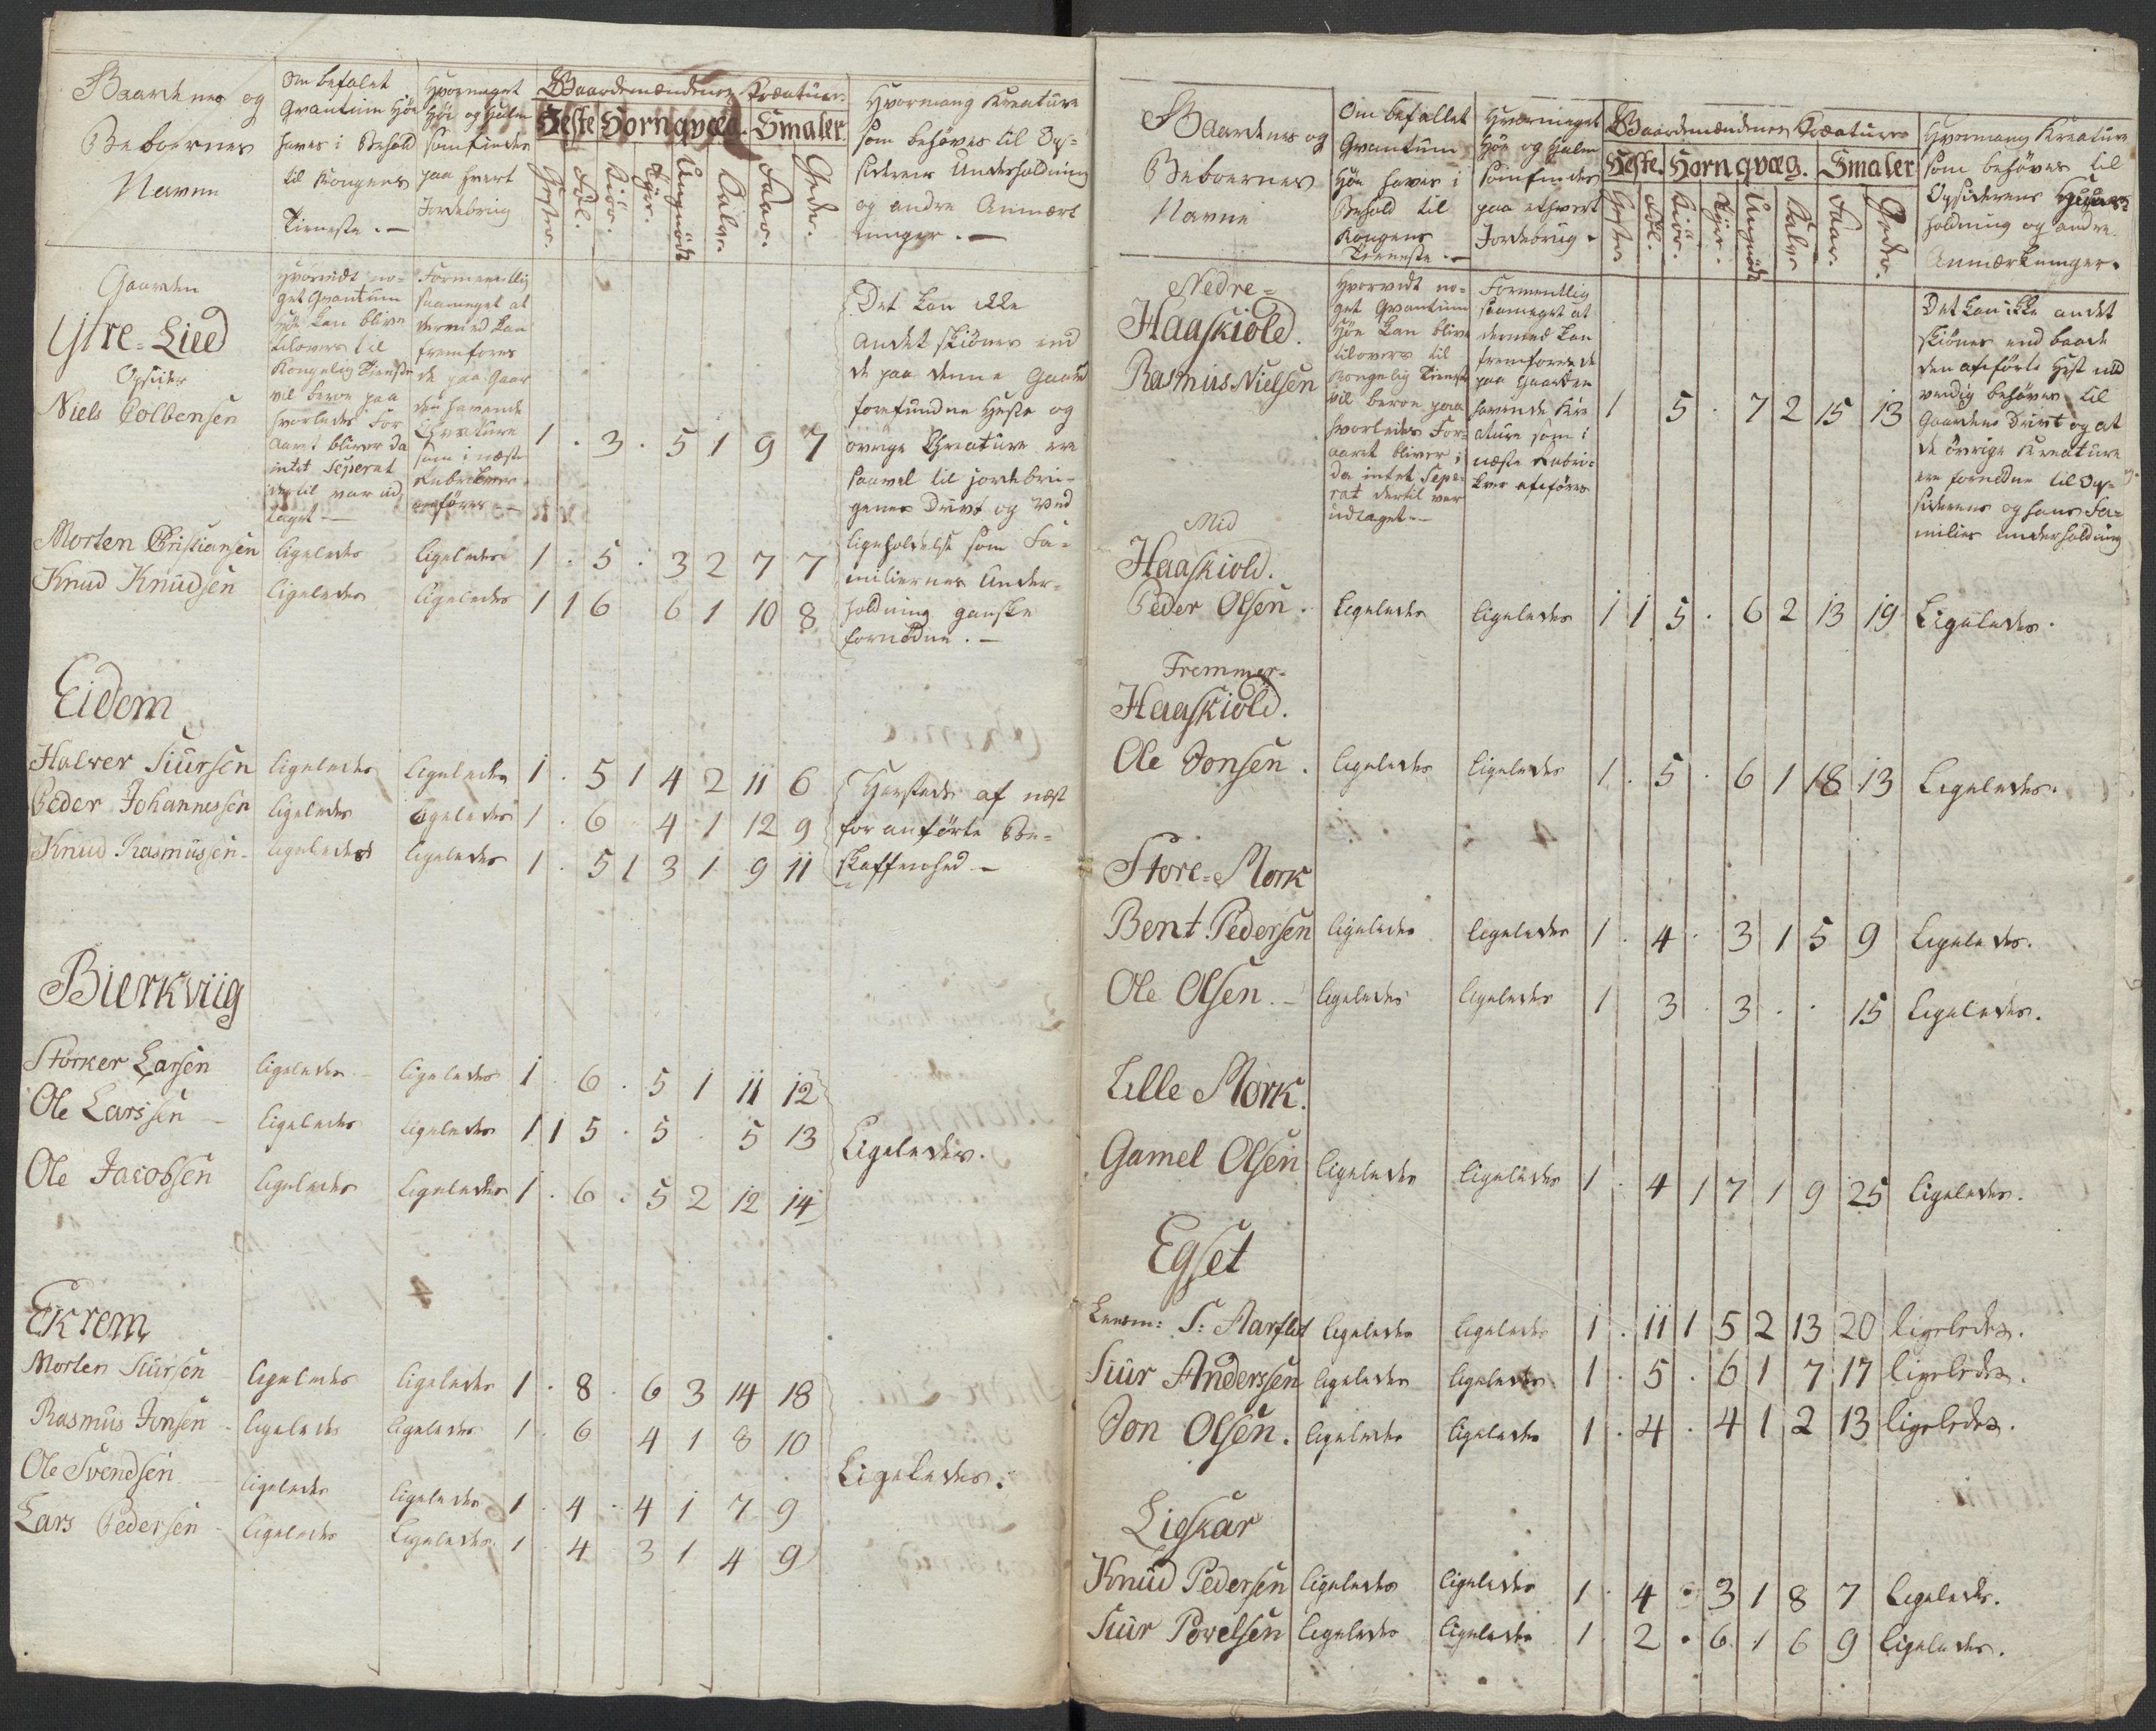 Gaardenes og
Beboernes
Navne
Om befalet
Qvantum Høe
haves i Behold
til Kongens
Tieneste . —
Hvormeget
Høe og Halm
som findes
paa hvert
Jordebrug
Gaardemændenes Creature
Heste Hornqvæg. Smaler.
Heste. Føl. Kiör. Tyre. Ungnöd Kalve. Faar. Geder.
Hvormang Kreature
som behøves til Op-
sidernes Underholdning
og andre Anmærk
ninger . —
Gaarden
Ytre-Lied
Opsider
Niels Colbensen
Hvorvidt no-
get Qvantum
Høe kan blive
tilovers til
Kongelig Tieneste
vil beroe paa
hvorledes For
aaret bliver da
intet Seperat
der til var ud
taget —
Formentlig
saameget at
dermed kan
fremfores
de paa Gaar
den havende
Creature
som i næste
Rubrikker
anføres —
1 . 3 . 5 1 9 7
Det kan ikke
andet skiönes end
de paa denne Gaard
forefundne Heste og
övrige Creature ere
saavel til jordebru-
genes Drivt og Ved
ligeholdelse som Fa-
miliernes Under-
holdning ganske
fornödne . —
Morten Cristiansen ligeledes ligeledes 1 . 5 . 3 2 7 7
Knud Knudsen ligeledes ligeledes 1 1 6 6 1 10 8
Eidem
Halver Siursen ligeledes ligeledes 1 . 5 1 4 2 11 6
Peder Johannessen ligeledes ligeledes 1 . 6 4 1 12 9
Knud Rasmussen - ligeledes ligeledes 1 . 5 1 3 1 9 11
af næst
for anførte Be-
skaffenhed —
Bierkviig
Storker Larsen ligeledes — ligeledes 1 . 6 . 5 1 11 12
Ole Larssen — ligeledes ligeledes 1 1 5 . 5 . 5 13
Ole Jacobsen ligeledes ligeledes 1 . 6 . 5 2 12 14
Ligeledes.
Ekrem
Morten Siursen ligeledes ligeledes 1 . 8 . 6 3 14 18
Rasmus Jonsen - ligeledes ligeledes 1 . 6 4 1 8 10
Ole Svendsen ligeledes ligeledes 1 . 4 . 4 1 7 9
Lars Pedersen - ligeledes ligeledes 1 . 4 . 3 1 4 9
Ligeledes.
Gaardenes og
Beboernes
Navne
Om befallet
Qvantum
Høe haves i
Behold til
Kongens
Tieneste . —
Hvormeget
Høe og Halm
som findes
paa ethvert
Jordebrug -
Gaardemændenes Creature
Heste. Hornqvæg. Smaler
Heste. Föl. Kiör. Tyre. Ungnöd Kalve Faar. Geder.
Hvormang Kreature
som behøves til
Opsidernes Under-
holdning og andre
Anmærkninger.
Nedre-
Haaskiold.
Rasmus Nielsen
Hvorvidt no-
get Qvantum
Høe kan blive
tilovers til
Kongelig Tieneste
vil beroe paa
hvorledes For-
aaret bliver
da intet Sepe-
rat dertil var
udtaget. —
Formentlig
saameget at
dermed kan
fremfores de
paa Gaarden
havende Kre
ature som i
næste Rubri-
ker anføres
1 5 . 7 2 15 13
Det kan ikke andet
skiönes end baade
den anførte Hest nöd
vendig behøves til
Gaardens Drivt og at
de övrige Kreature
ere fornödne til Op-
sidernes og hans Fa-
milies underholdning
Mid
Haaskiold.
Peder Olsen . ligeledes ligeledes 1 1 5 . 6 2 13 19 Ligeledes.
Fremmer-
Haaskiold.
Ole Jonsen . ligeledes ligeledes 1 . 5 . 6 1 18 13 Ligeledes.
Store-Mork
Bent Pedersen ligeledes ligeledes 1 . 4 . 3 1 5 9 Ligeledes.
Ole Olsen. — ligeledes ligeledes 1 3 . 3 . . 15 Ligeledes.
Lille Mork.
Gamel Olsen ligeledes ligeledes 1 . 4 1 7 1 9 25 ligeledes.
Egset
Lensm: S: Aarflot ligeledes ligeledes 1 . 11 1 5 2 13 20 ligeledes.
Siur Anderssen ligeledes ligeledes 1 . 5 . 6 1 7 17 ligeledes.
Jon Olsen. ligeledes ligeledes 1 . 4 . 4 1 2 13 ligeledes.
Lieskar
Knud Pedersen ligeledes ligeledes 1 . 4 . 3 1 8 7 Ligeledes.
Siur Povelsen ligeledes ligeledes 1 . 2 . 6 1 6 9 ligeledes.